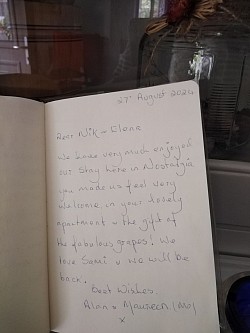 27th August 2024
Dear Nik & Elene
We have very much enjoyed
our stay here in Nostalgia
you made us feel very
welcome in your lovely
apartment & the gift of
the fabulous grapes! We
love Sami & we will be
back.
Best Wishes
Alan & Maureen
x